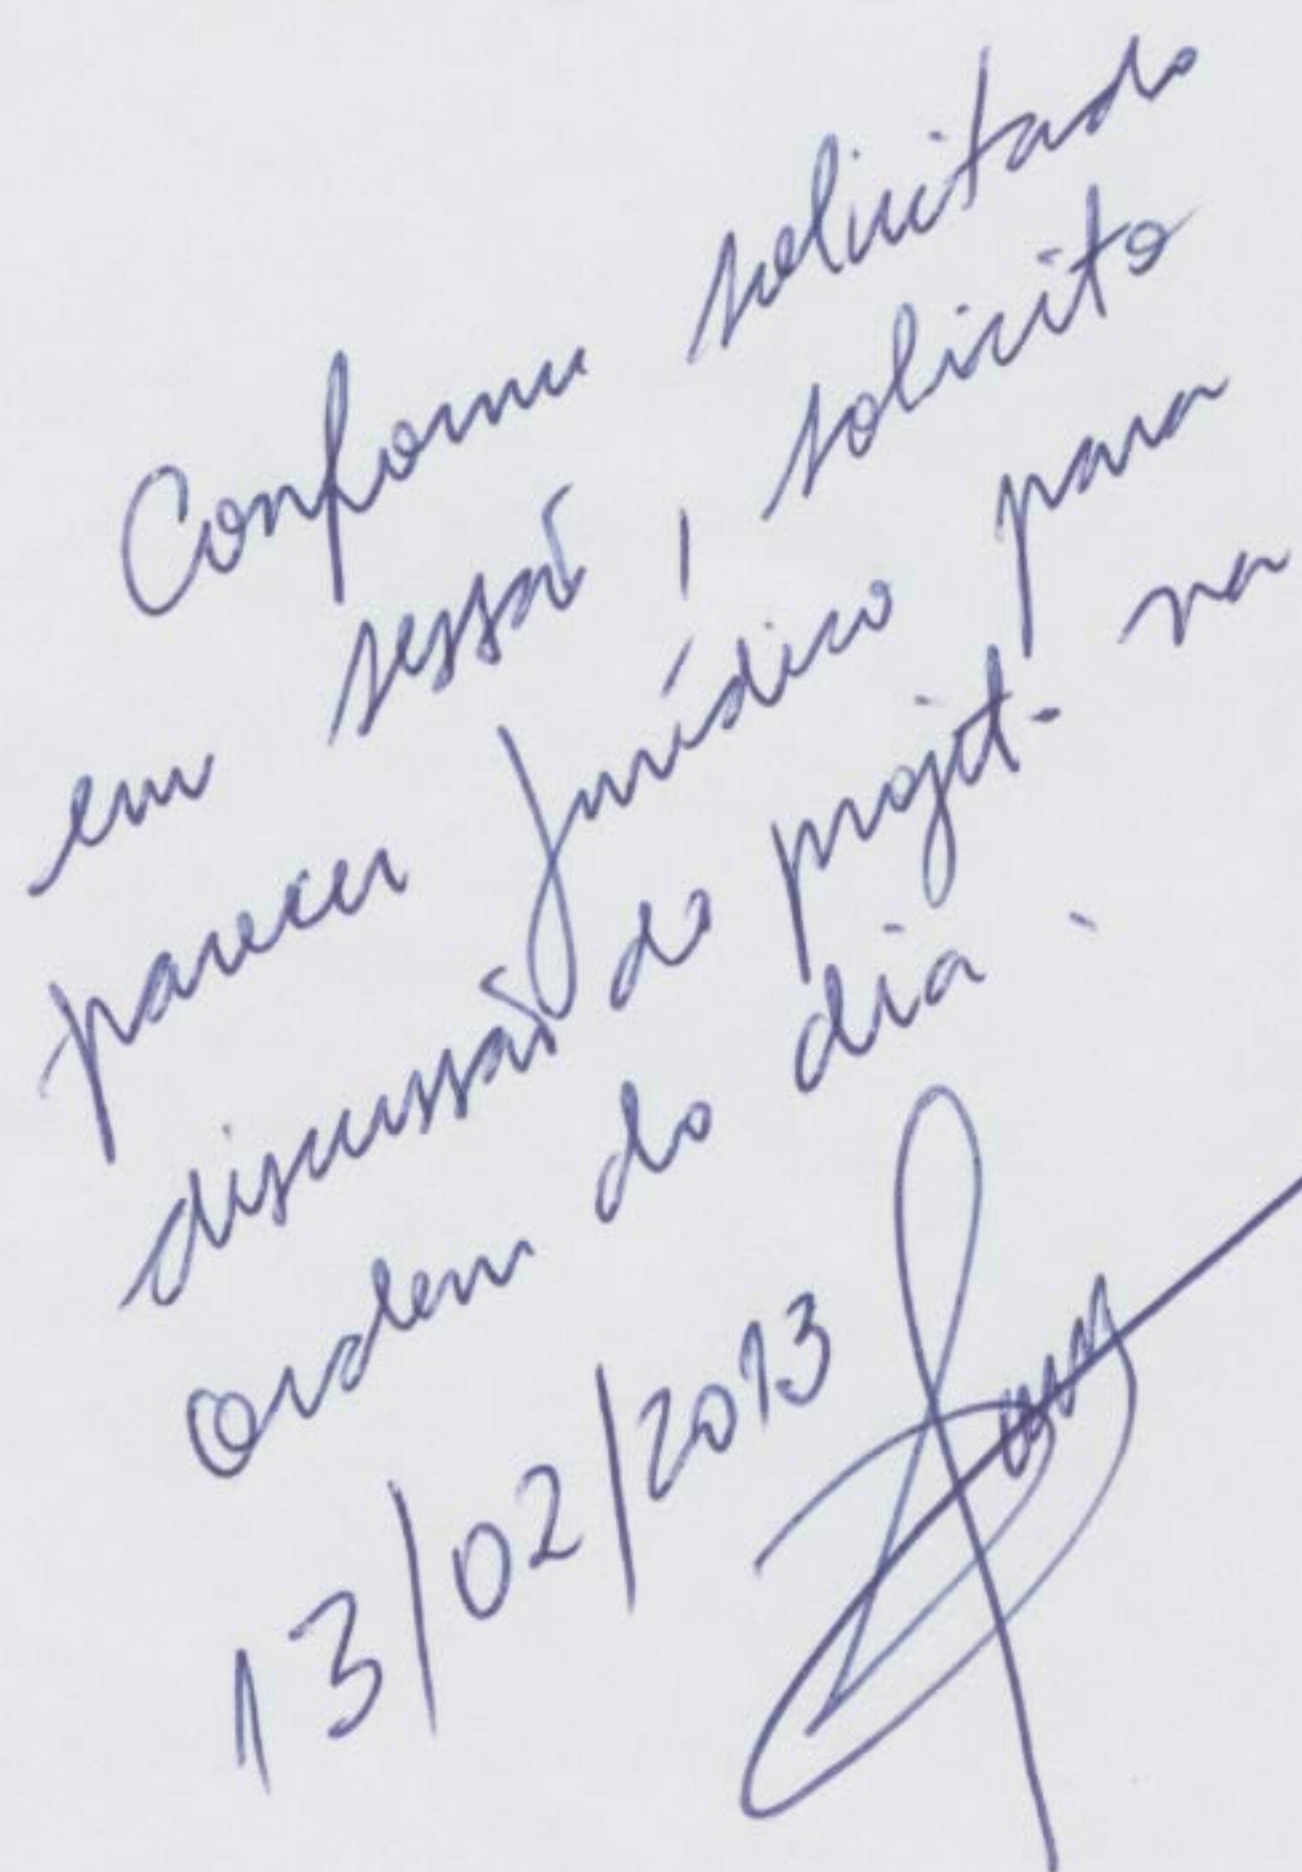 Conforme solicitado
em sessão, solicito
parecer Jurídico para
discussão do projeto na
ordem do dia.
13/02/2013